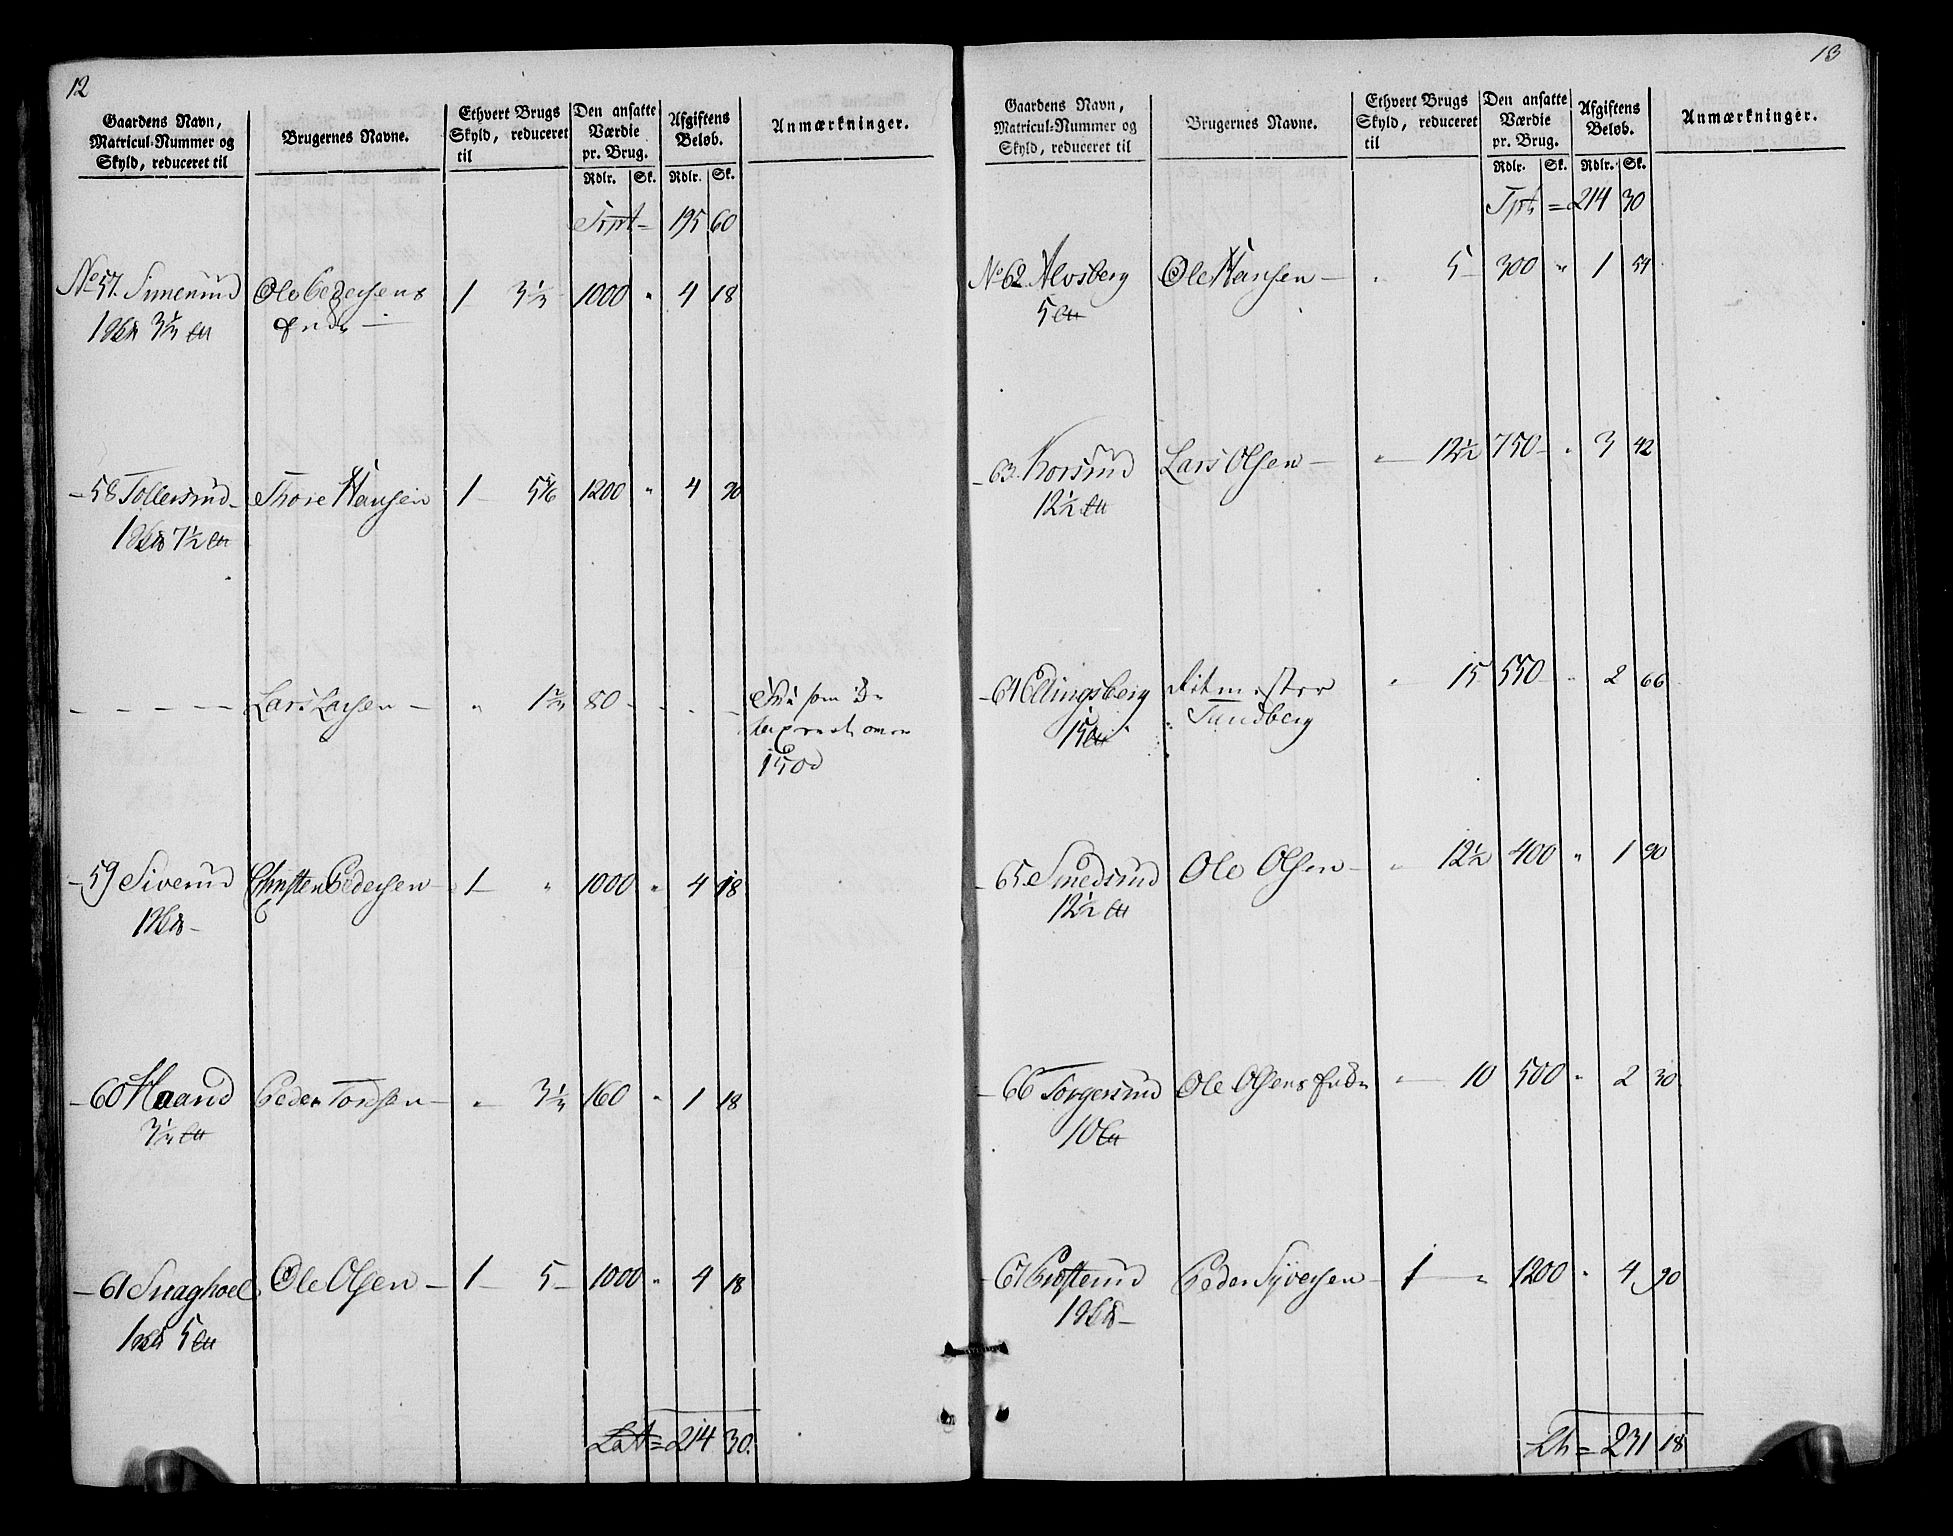 12
Gaardens Navn, Matricul-Nummer og Skyld, reduceret til
Brugernes Navne.
Ethvert Brugs Skyld, reduceret til
Den ansatte Værdie pr. Brug.
Afgiftens Beløb.
Anmærkninger.
Rdlr. Sk. Rdlr. Sk.
Trpt = 195 60
No 57. Simerud Ole Pedersens 1 3 1/3 1000 " 4 18
1 3 1/3 Enke
- 58 Tollersrud Thore Hansen 1 5 5/6 1200 " 4 90
1 7 1/2
- - - - Lars Larsen - " 1 2/3 80 - - -
150
- 59 Siverud Christen Pedersen 1 - " 1000 " 4 18
1
- 60 Haand Peder Tordsen - " 3 1/3 160 " 1 18
3 1/3
- 61 Snaghoel Ole Olsen - 1 - 5 - 1000 " 4 18
1 5
Lat = 214 30.
13
Gaardens Navn, Matricul-Nummer og Skyld, reduceret til
Brugernes Navne.
Ethvert Brugs Skyld, reduceret til
Den ansatte Værdie pr. Brug.
Afgiftens Beløb.
Anmærkninger.
Rdlr. Sk. Rdlr. Sk.
Tpt = 214 30
No 62 Alvsberg Ole Hansen - " 5 - 300 " 1 54
5
- 63 Korsrud Lars Olsen - " 12 1/2 750 - " 3 42
12 1/2
- 64 Ellingsberg Ritmester " 15 550 - " 2 66
15 Sundberg
- 65 Smedsrud Ole Olsen - " 12 1/2 400 " 1 90
12 1/2
- 66 Torgersrud Ole Olsens Enke " 10 500 " 2 30
10
- 67 Peder Syversen - 1 - " 1200 " 4 90
1
= 231 18